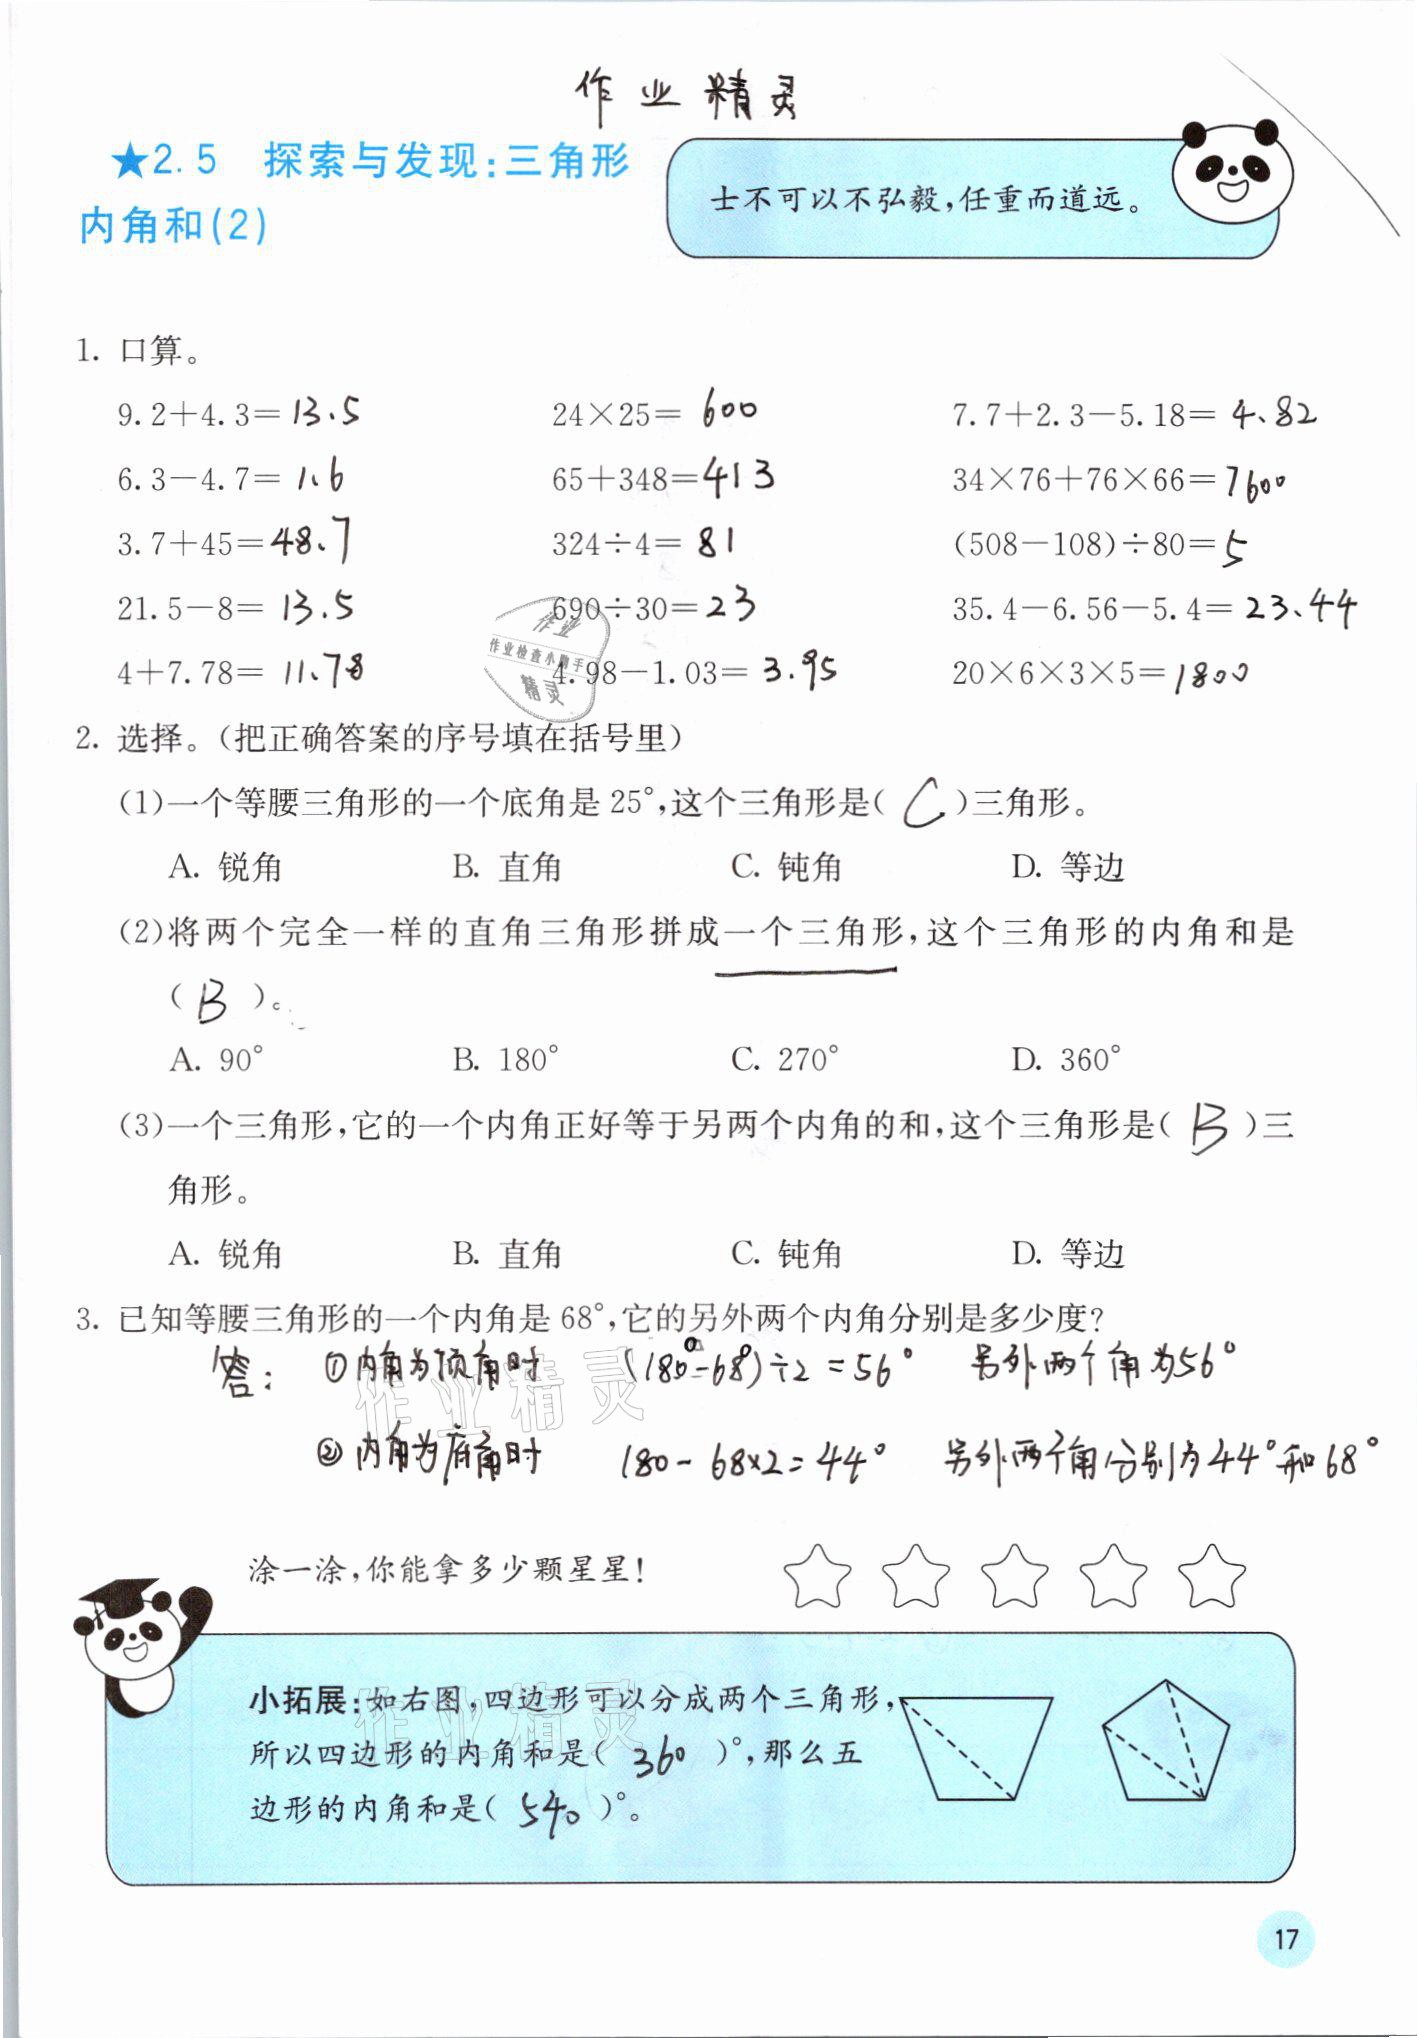 作业精灵
★2.5 探索与发现:三角形
内角和(2)
士不可以不弘毅,任重而道远。
1. 口算。
9.2+4.3=13.5 24×25=600 7.7+2.3-5.18=4.82
6.3-4.7=1.6 65+348=413 34×76+76×66=7600
3.7+45=48.7 324÷4=81 (508-108)÷80=5
21.5-8=13.5 690÷30=23 35.4-6.56-5.4=23.44
4+7.78=11.78 4.98-1.03=3.95 20×6×3×5=1800
作业
作业检查小助手
精灵
2. 选择。(把正确答案的序号填在括号里)
(1)一个等腰三角形的一个底角是25°,这个三角形是( C )三角形。
A. 锐角 B. 直角 C. 钝角 D. 等边
(2)将两个完全一样的直角三角形拼成一个三角形,这个三角形的内角和是
( B )。
A. 90° B. 180° C. 270° D. 360°
(3)一个三角形,它的一个内角正好等于另两个内角的和,这个三角形是( B )三
角形。
A. 锐角 B. 直角 C. 钝角 D. 等边
3. 已知等腰三角形的一个内角是68°,它的另外两个内角分别是多少度?
答: ①内角为顶角时 (180°-68°)÷2=56° 另外两个角为56°
②内角为底角时 180-68×2=44° 另外两个角分别为44°和68°
作业精灵
涂一涂,你能拿多少颗星星!
小拓展:如右图,四边形可以分成两个三角形,
所以四边形的内角和是( 360 )°,那么五
边形的内角和是( 540 )°。
作业精灵
17